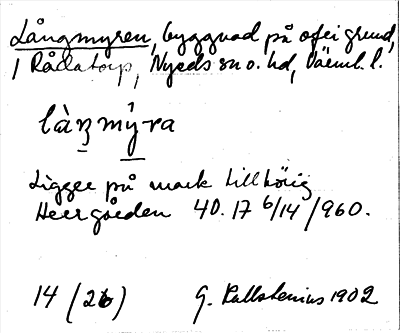 Långmyren, byggnad på ofri grund,
i Rådatorp, Nyeds sn o. hd, Värml. l.
làŋmy̌ra
Ligger på mark tillhörig
Herrgården 40.17 6/14 /960.
14 (26) G. Kallstenius 1902